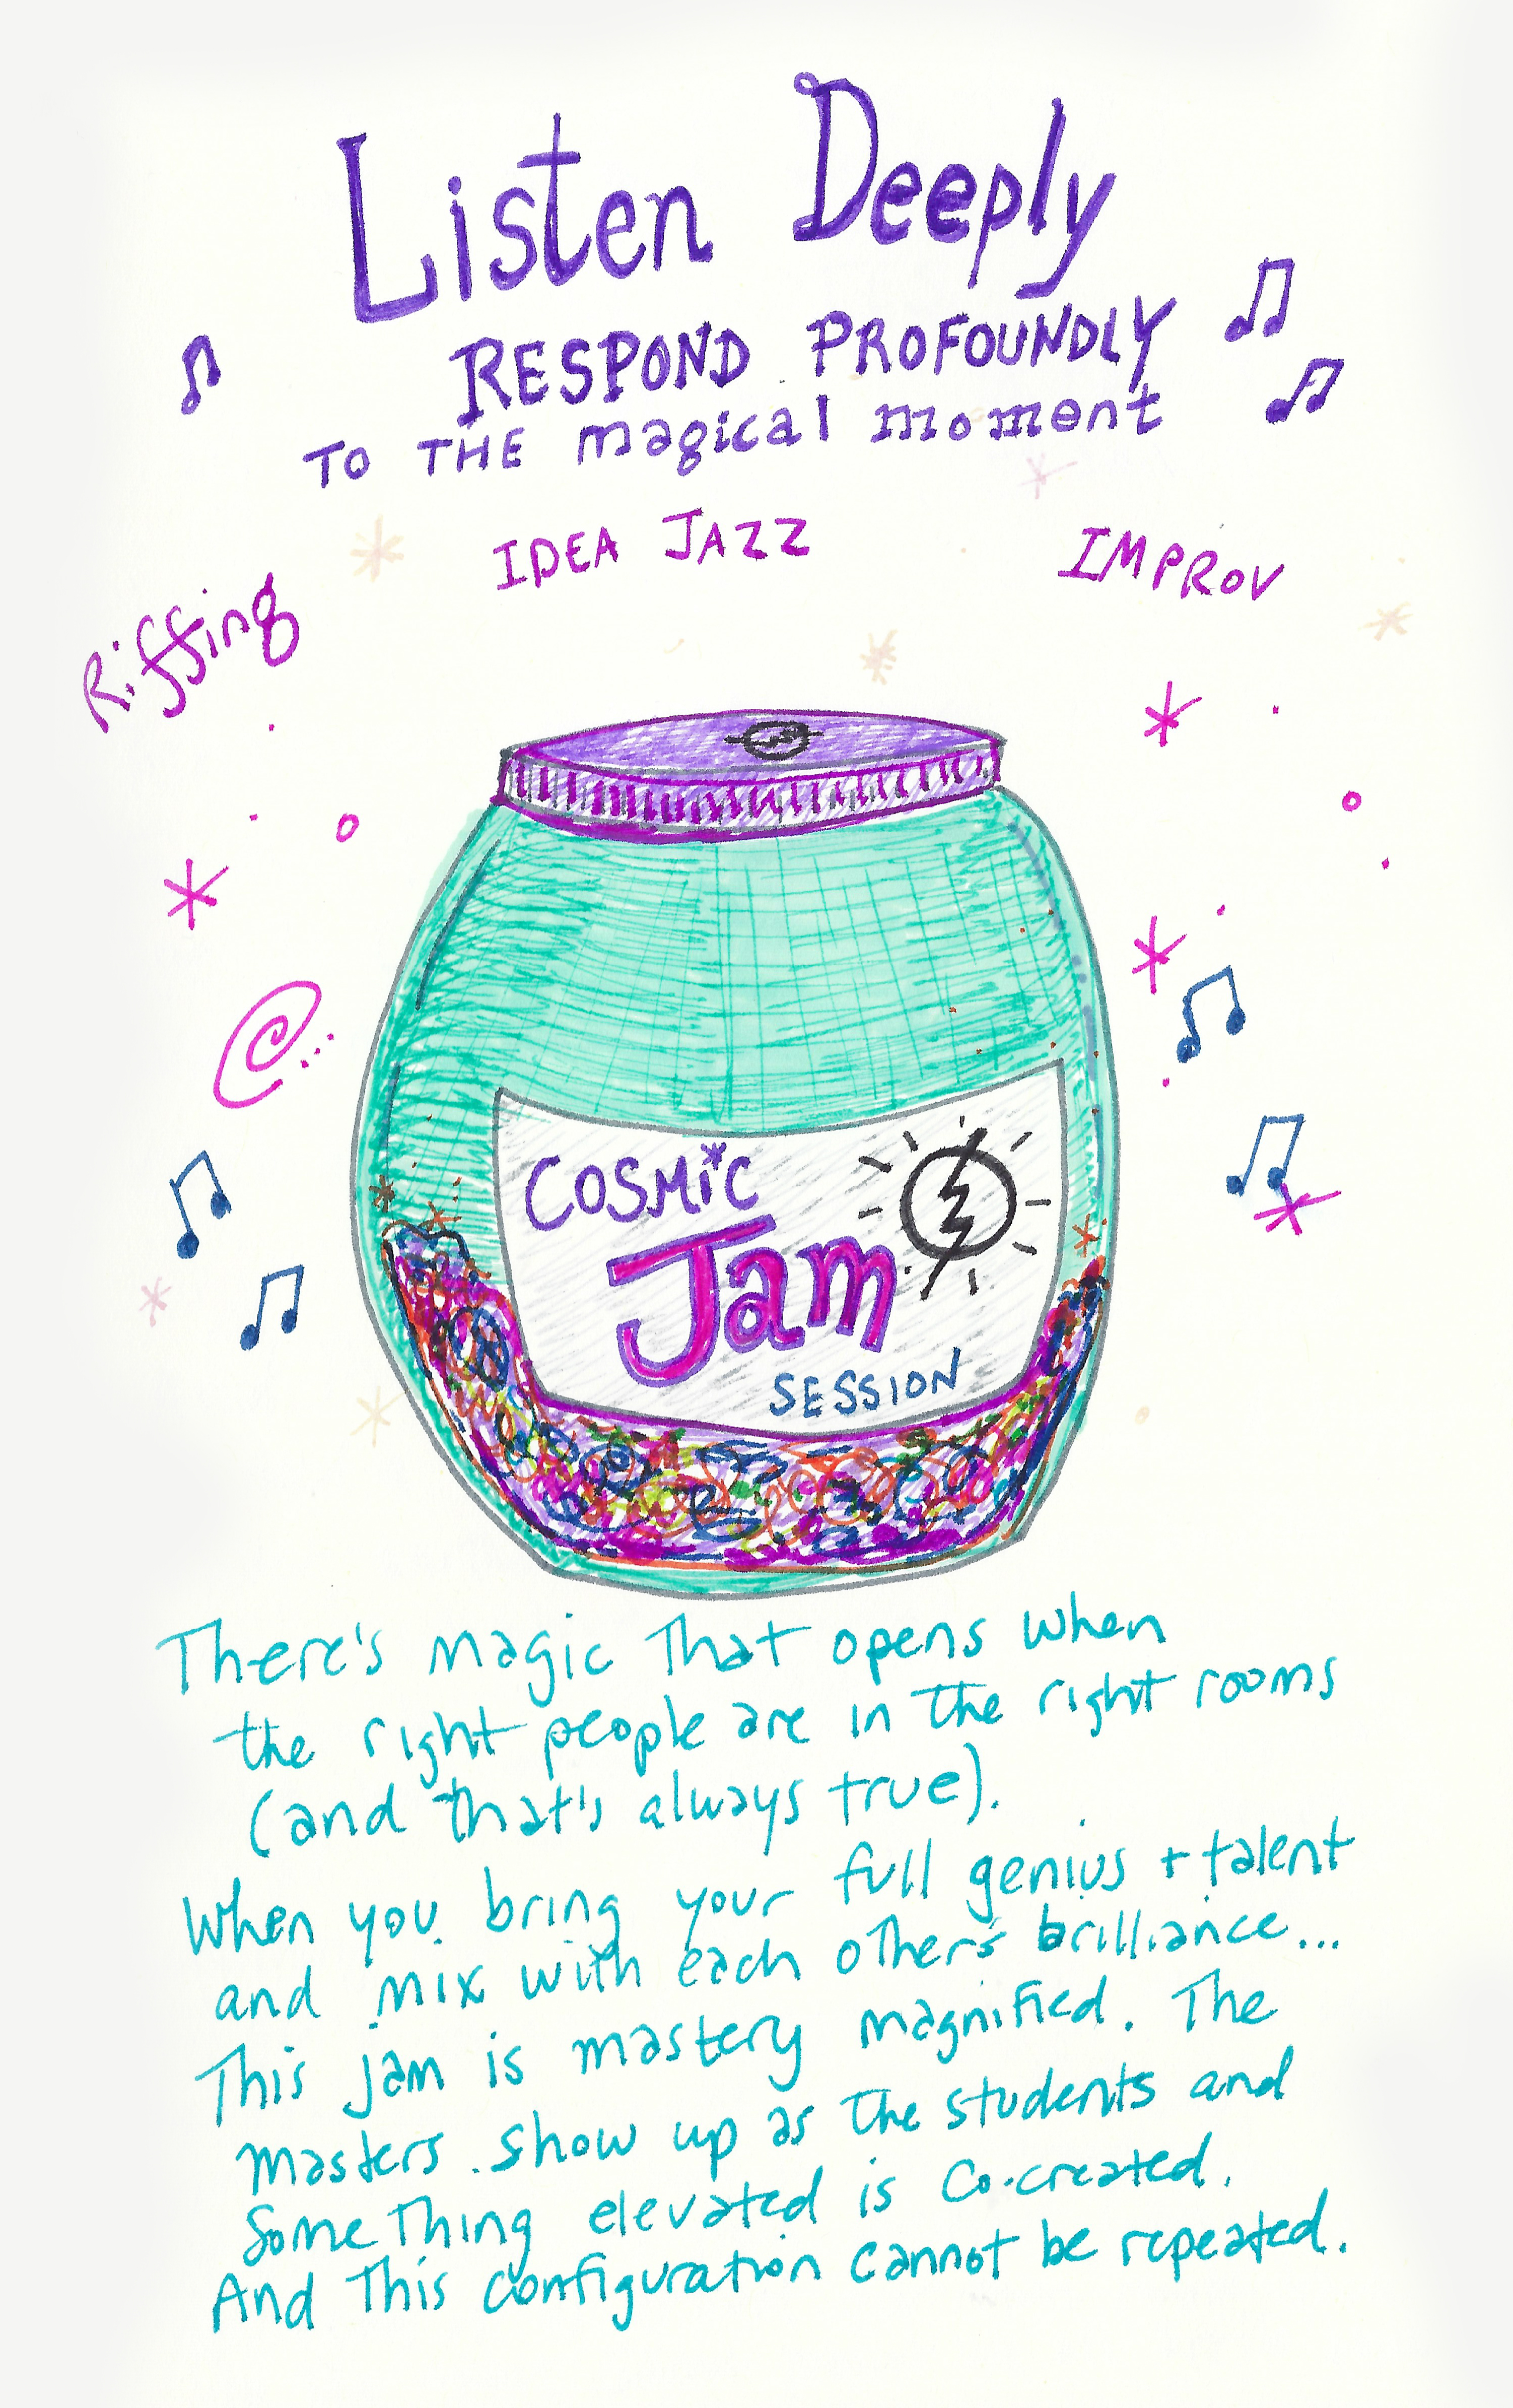 Listen Deeply
RESPOND PROFOUNDLY
TO THE magical moment
IDEA JAZZ
IMPROV
Riffing
COSMiC
Jam
SESSION
There's magic that opens when
the right people are in the right rooms
(and that's always true).
When you bring your full genius + talent
and mix with each other's brilliance...
This jam is mastery magnified. The
masters show up as the students and
something elevated is co-created.
And this configuration cannot be repeated.